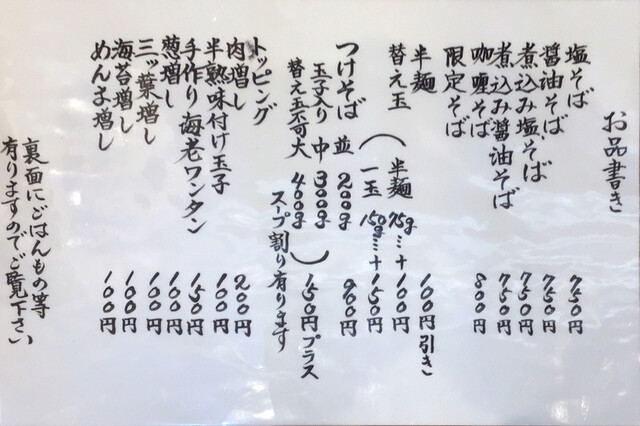 お品書き
塩そば 750円
醤油そば 750円
煮込み塩そば 750円
煮込み醤油そば 750円
咖喱そば 800円
限定そば
半麺 100円引き
替え玉(半麺 75g…+100円
一玉 150g…+150円
つけそば 並 200g 900円
玉子入り 中 300g
替え玉不可 大 400g)150円プラス
スープ割り有ります
トッピング
肉増し 200円
半熟味付け玉子 100円
手作り海老ワンタン 150円
葱増し 100円
三ッ葉増し 100円
海苔増し 100円
めんま増し 100円
裏面にごはんもの等
有りますのでご覧下さい